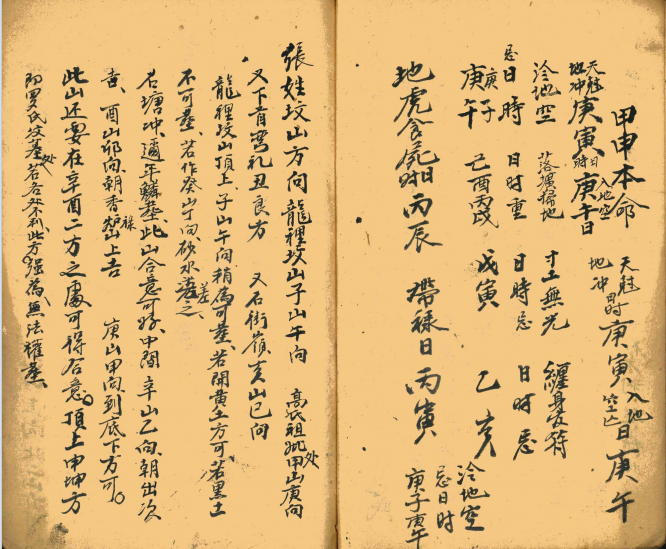 甲申本命
天尅地冲庚寅日時入地空庚午日
天尅地冲日時庚寅入地空亡日庚午
冷地空 落壙掃地 寸土無光 纏身受符
忌日時 日時重 日時忌 日時忌
庚子庚午 己酉丙戌 戊寅 乙亥
冷地空忌日時庚子庚午
地虎食屍日時丙辰 帶祿日丙寅
張姓坟山方向龍裡坟山子山午向 高氏祖坟處甲山庚向
又下首灣礼丑艮方 又石街嶺亥山巳向
龍裡坟山頂上子山午向稍為可塟若開黃土方可若黑土
不可塟若作癸山丁向砂水差之
石塘冲邇年鱗塟此山合意可好中間辛山乙向朝出次
吉酉山卯向朝香炉山上吉 庚山甲向到底下方可
此山还要在辛酉二方之處可得合意頂上申坤方
即罗氏坟墓處若各外利此方强為無法權塟